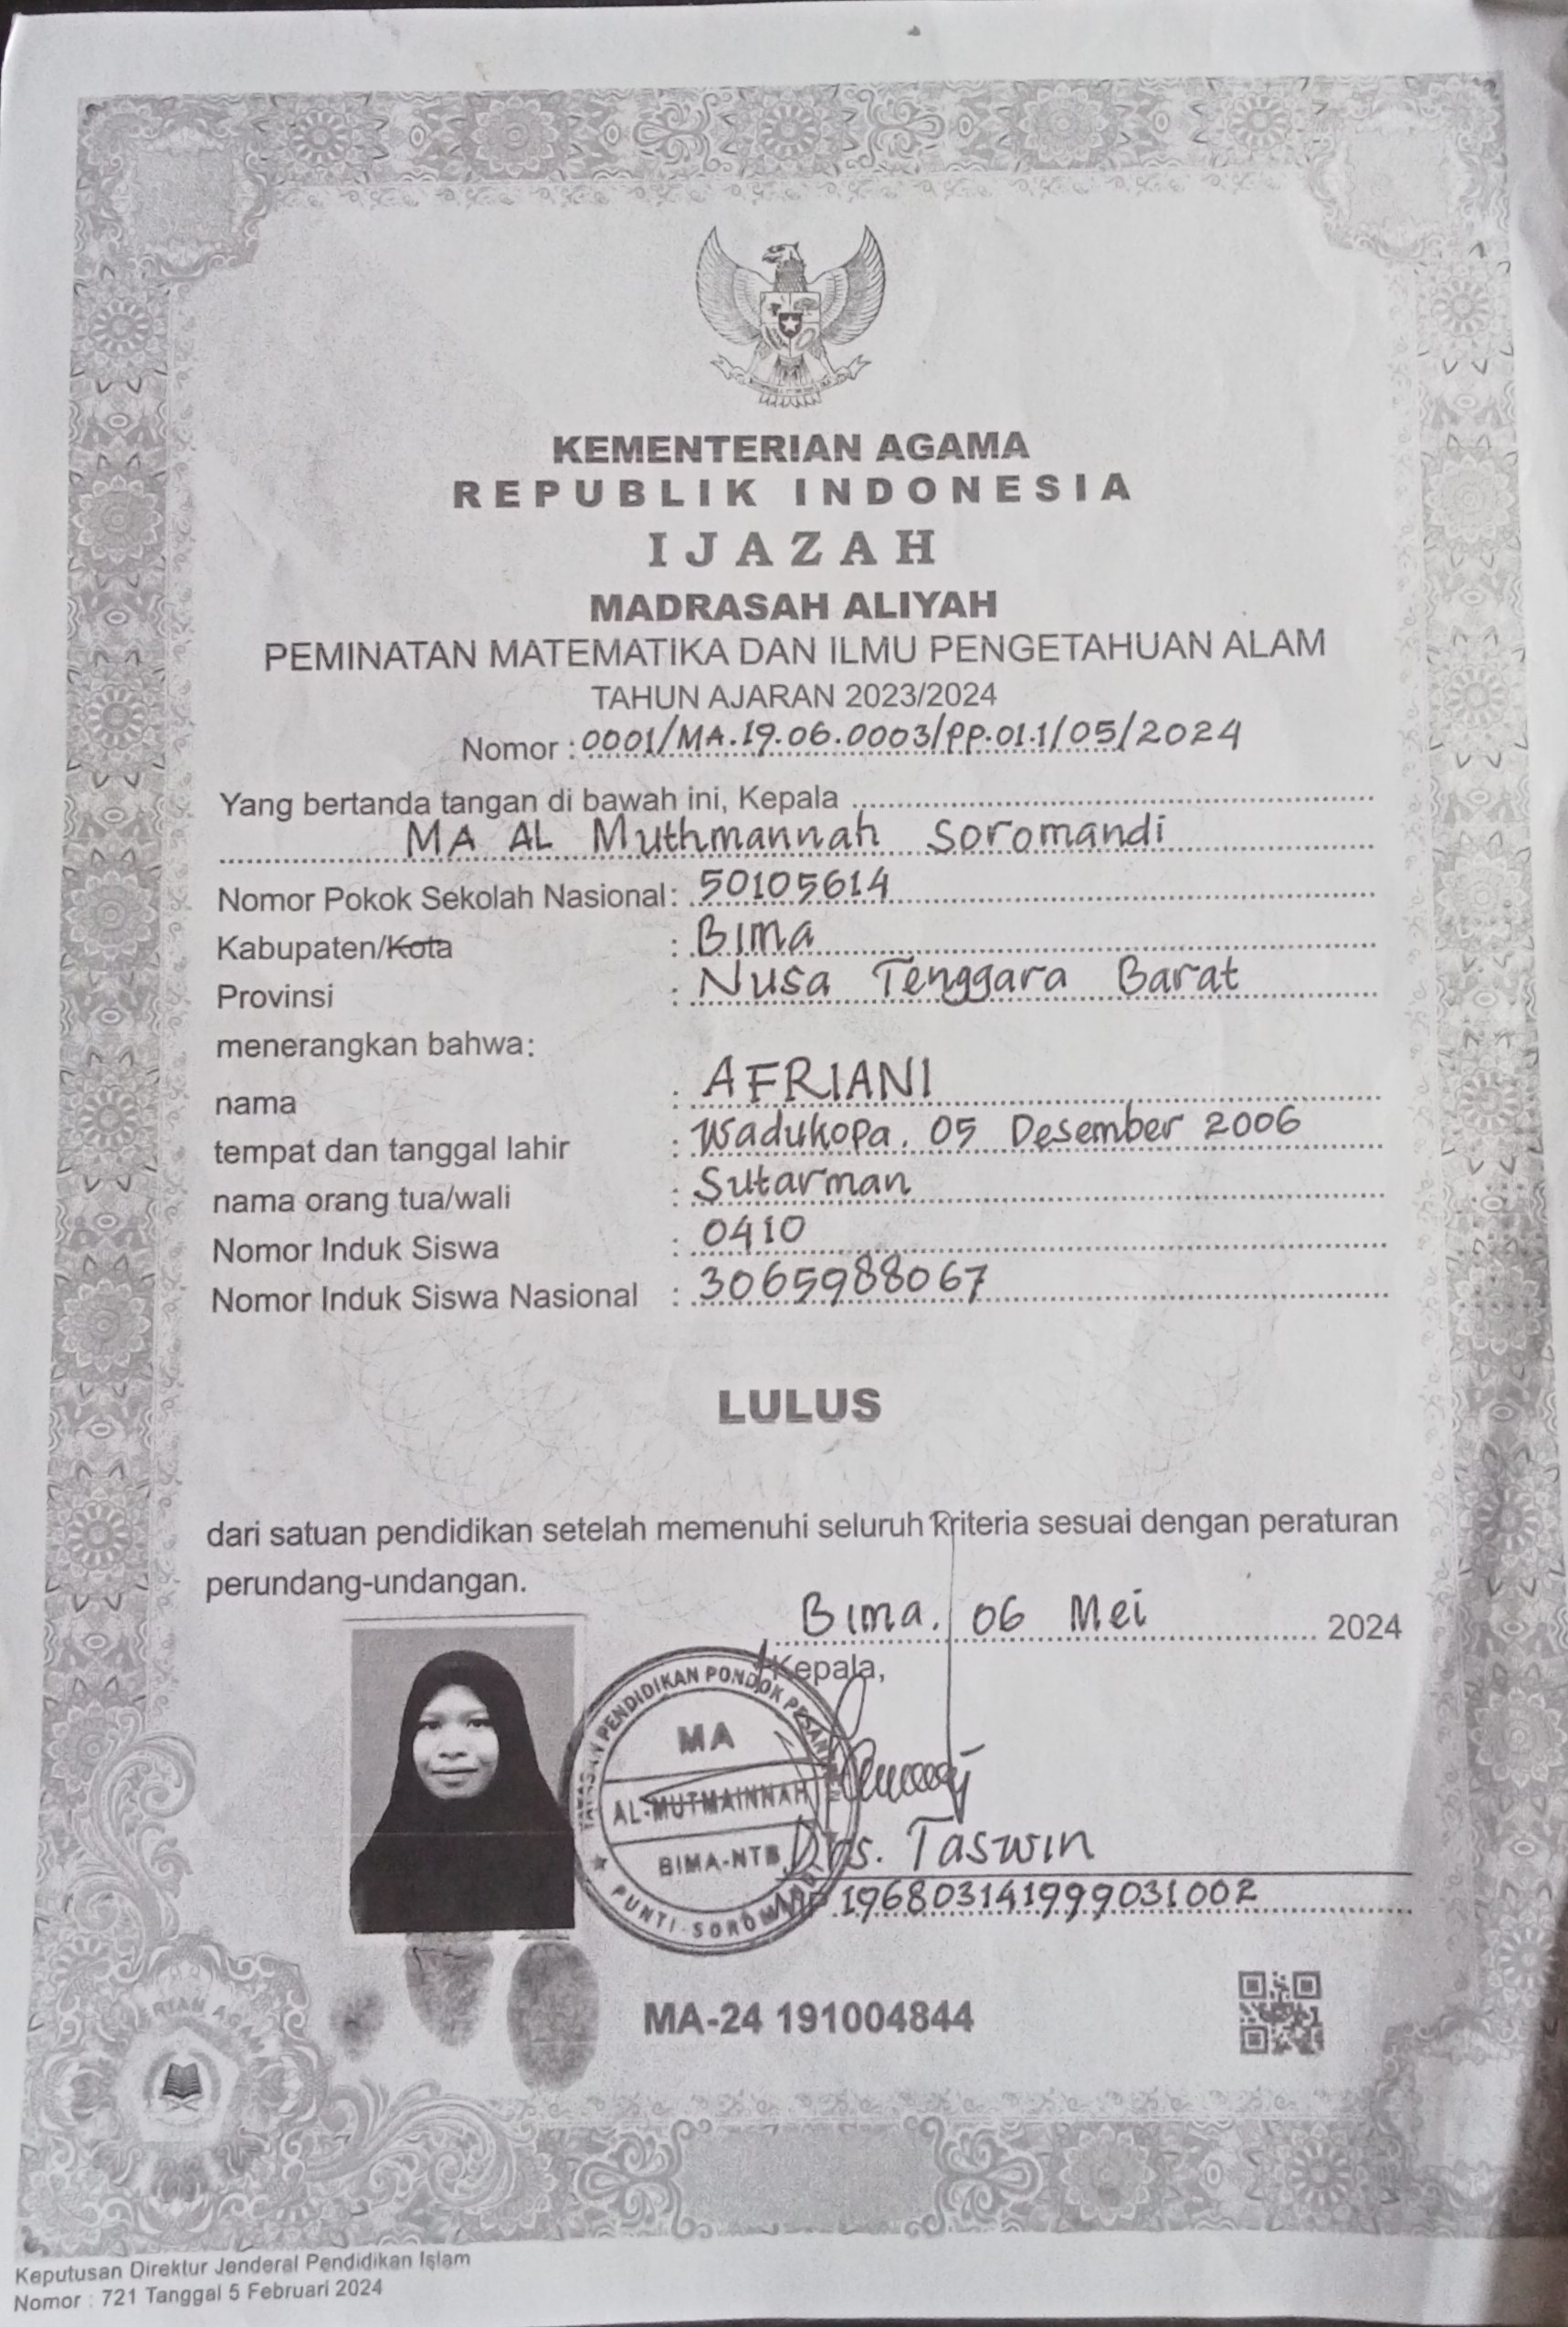 KEMENTERIAN AGAMA
REPUBLIK INDONESIA
IJAZAH
MADRASAH ALIYAH
PEMINATAN MATEMATIKA DAN ILMU PENGETAHUAN ALAM
TAHUN AJARAN 2023/2024
Nomor : 0001/MA.19.06.0003/PP.01.1/05/2024
Yang bertanda tangan di bawah ini, Kepala
MA AL Muthmannah Soromandi
Nomor Pokok Sekolah Nasional : 50105614
Kabupaten/Kota : Bima
Provinsi : Nusa Tenggara Barat
menerangkan bahwa:
nama : AFRIANI
tempat dan tanggal lahir : Wadukopa, 05 Desember 2006
nama orang tua/wali : Sutarman
Nomor Induk Siswa : 0410
Nomor Induk Siswa Nasional : 3065988067
LULUS
dari satuan pendidikan setelah memenuhi seluruh kriteria sesuai dengan peraturan
perundang-undangan.
Bima, 06 Mei 2024
Kepala,
YAYASAN PENDIDIKAN PONDOK PESAN
MA
AL-MUTMAINNAH
BIMA-NTB
PUNTI-SOROMANDI
Drs. Taswin
NIP 196803141999031002
MA-24 191004844
ERIAN AGAMA
Keputusan Direktur Jenderal Pendidikan Islam
Nomor : 721 Tanggal 5 Februari 2024